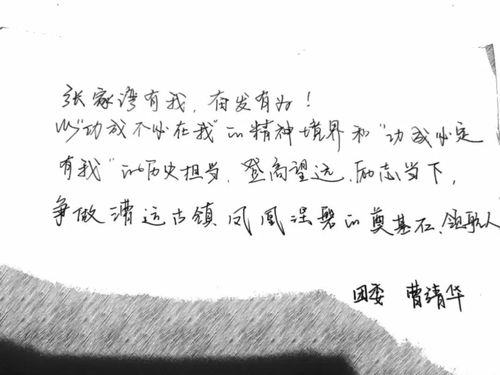 张家湾有我，奋发有为！
以“功成不必在我”的精神境界和“功成必定
有我”的历史担当，登高望远，励志当下，
争做漕运古镇凤凰涅磐的奠基石、领歌人
团委 曹靖华